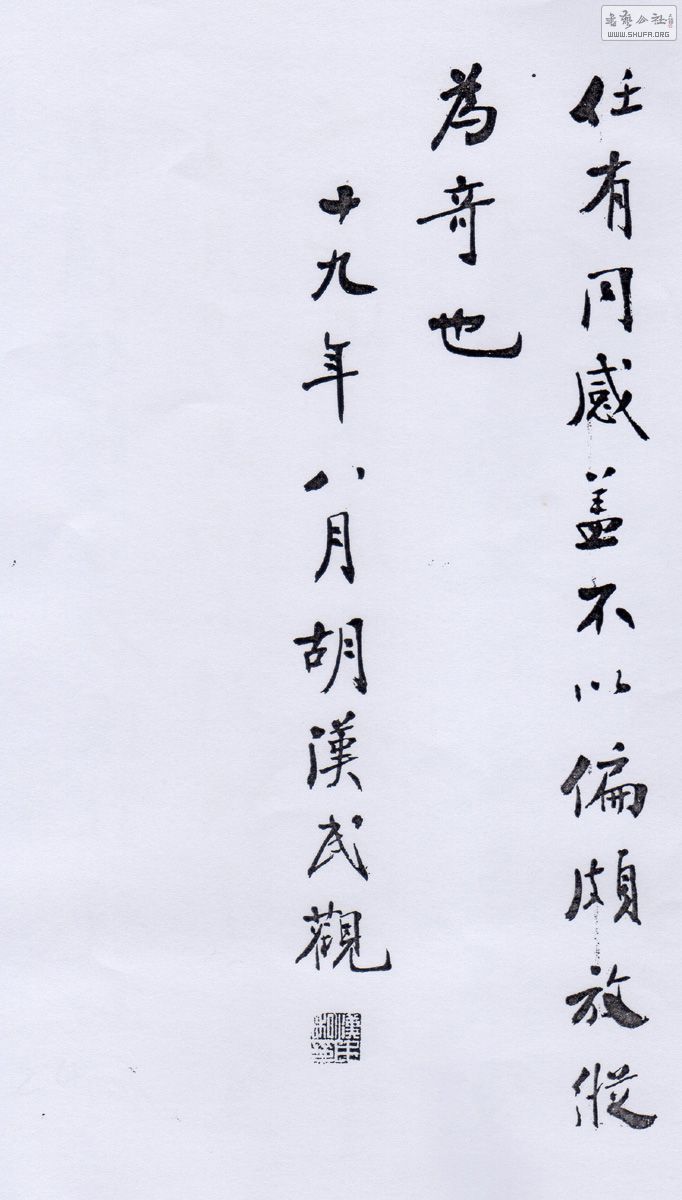 任有同感盖不以偏頗放縱
為奇也
十九年八月胡漢民觀
WWW.SHUFA.ORG